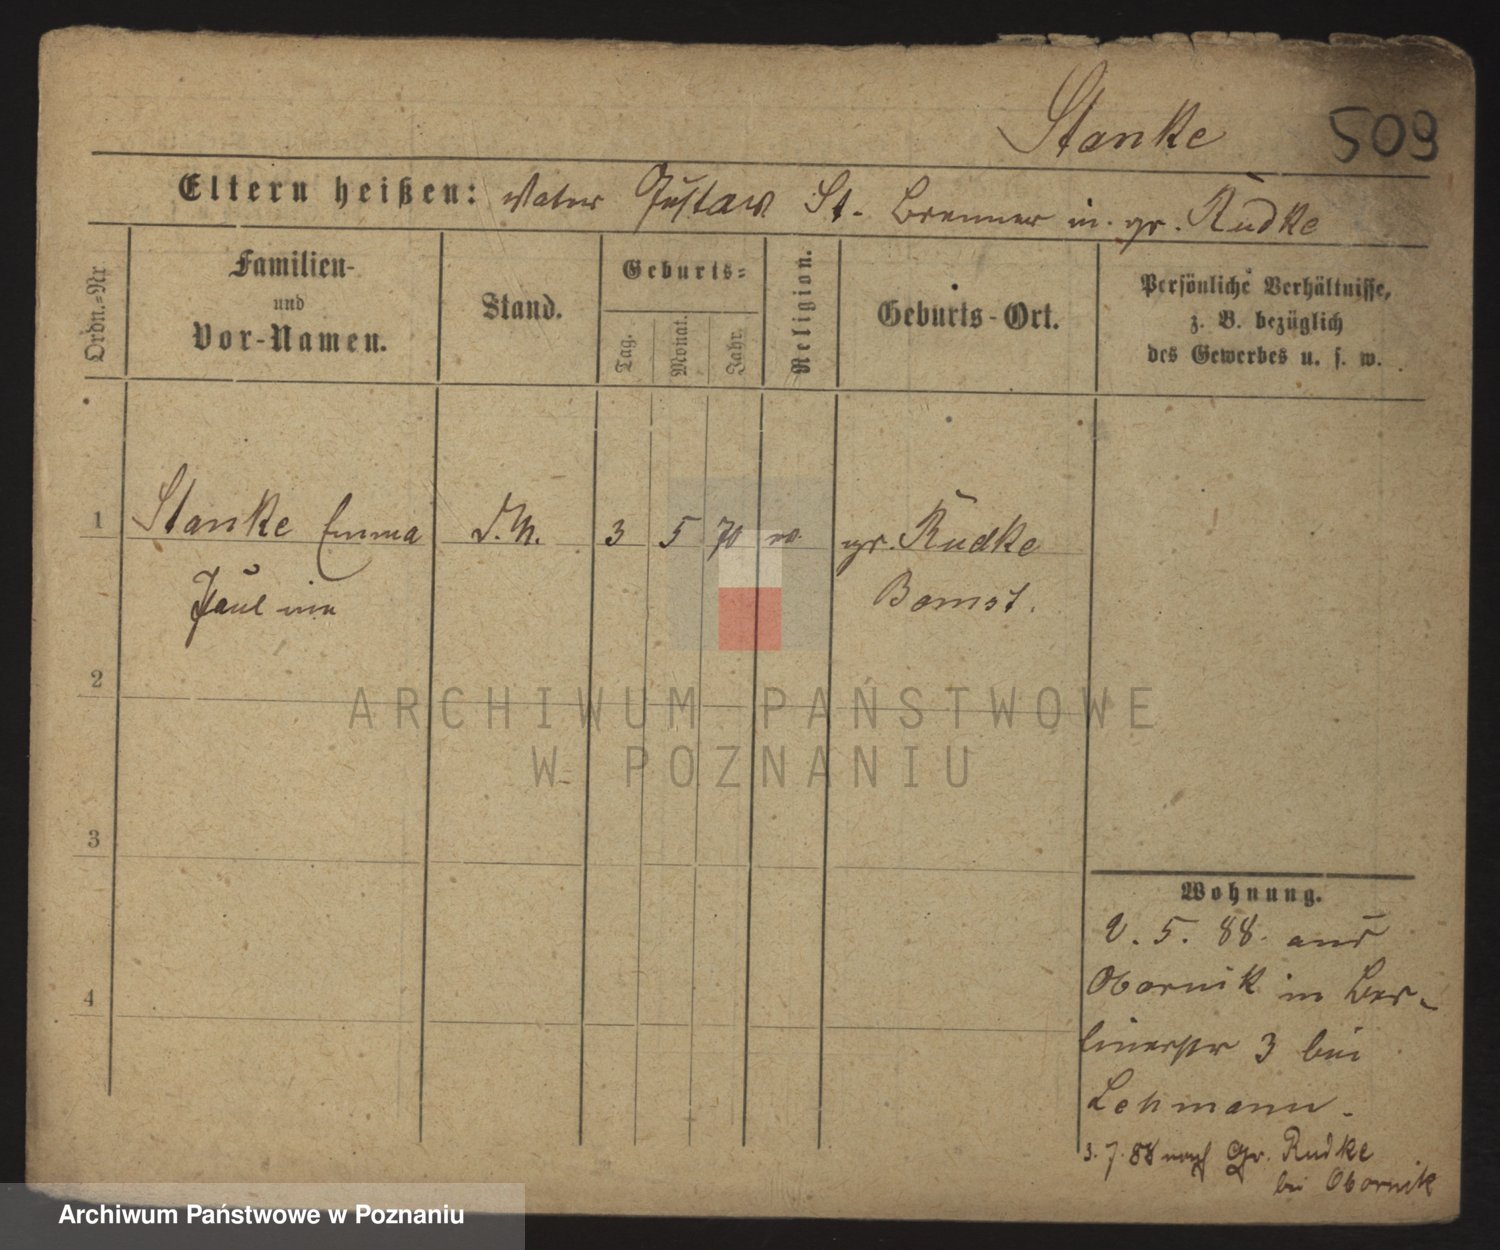 Stanke 509
Eltern heißen: Vater Gustaw St. Brenner in gr. Rudke
Ordn.=Nr.
Familien-
und
Vor-Namen.
Stand.
Geburts=
Tag.
Monat.
Jahr.
Religion.
Geburts-Ort.
Persönliche Verhältnisse,
z. B. bezüglich
des Gewerbes u. s. w.
1 Stanke Emma D.M. 3 5 70 gr. Rudke
Pauline Bomst.
2
3
4
Wohnung.
2. 5. 88. aus
Obornik in Ber-
linerstr 3 bei
Lehmann.
3. 7. 88 nach Gr. Rudke
bei Obornik
ARCHIWUM PAŃSTWOWE
W POZNANIU
Archiwum Państwowe w Poznaniu